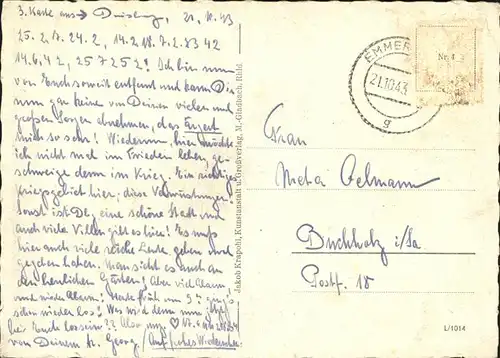 3. Karte aus → Duisburg, 21.10.43
25.2.17.24.2, 14.2.18.7.2.8342
14.6.42, 257252! Ich bin nun
von Euch soweit entfernt und kann Dir
nun gar keine von Deinen vielen und
großen Sorgen abnehmen, das
mich so sehr! Wiederum, hier möchte
ich nicht mal im Frieden leben, ge-
schweige denn im Krieg. Ein richtiges
hier, diese Verwüstungen!
Sonst ist Dbg. eine schöne Stadt und
auch viele Villen gibt es hier! Es muß
hier auch viele reiche Leute geben und
gegeben haben. Man sieht es auch an
den herrlichen Gärten! Aber viel Alarm
und wieder Alarm! Heute früh um
schon wieder los! Was wird denn nun
bei Euch los sein?? Aber
von Deinem Georg/ Auf frohes Wiedersehen
Jakob Krapohl, Kunstanstalt u. Großverlag, M.-Gladbach, Rhld.
EMMER
21.10.43
g
Nr. 4
Frau
Meta Oelmann
Buchholz i/Sa
Postf. 18
L/1014